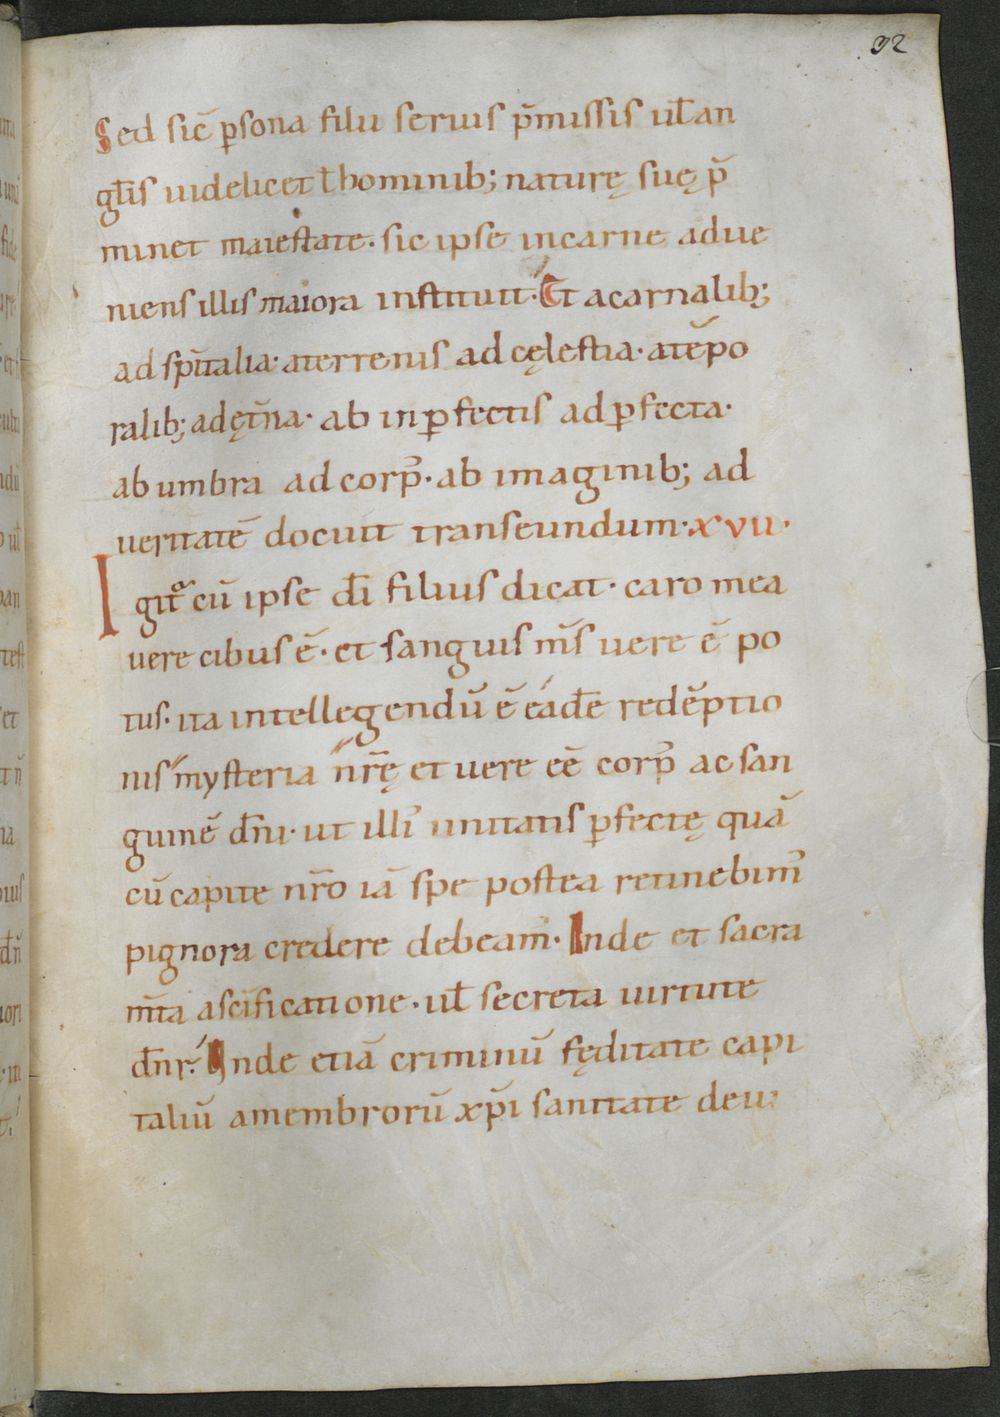 32
Sed sic̄ p̱sona filii seruis p̄missis ul̄ an
gl̄is uidelicet ł hominib; naturę suę p̄
minet maiestate· sic ipse in carne adue
niens illis maiora instituit· Et a carnalib;
ad sp̄italia· a terrenis ad cęlestia· a tēpo
ralib; ad ęt̄na· ab inp̱fectis ad p̱fecta·
ab umbra ad corp᾿· ab imaginib; ad
ueritatē docuit transeundum· xvii·
Igit᷑ cū ipse dī filius dicat· caro mea
uere cibus ē· et sanguis m̄s uere ē po
tus· ita intellegendū ē eadē redēptio
nis mysteria nr̄ę et uere eē corp᾿ ac san
guinē dn̄i· ut illi᾿ unitatis p̱fectę quā
cū capite nr̄o iā spe postea retinebim᾿
pignora credere debeam᾿· Inde et sacra
m̄ta a sc̄ificatione· ul̄ secreta uirtute
dn̄r· Inde etiā criminū fęditate capi
taliū a membrorū xp̄i sanitate deui